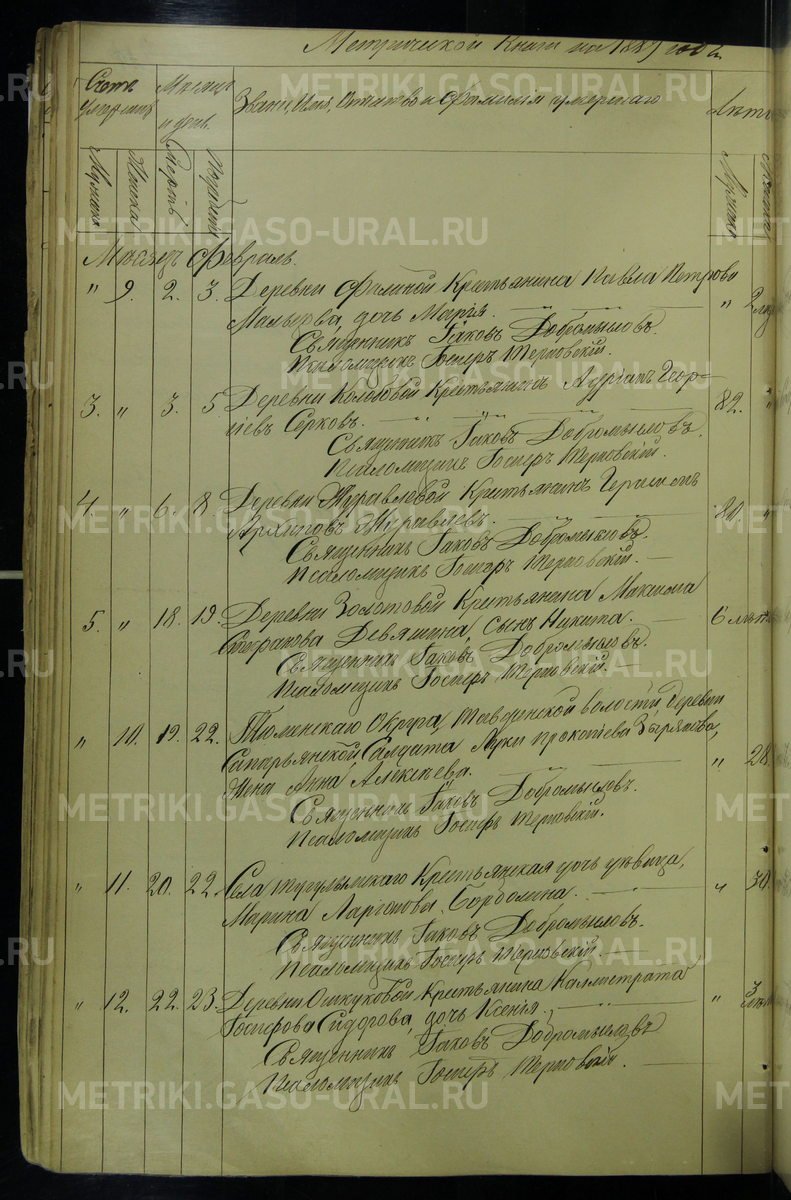 Метрической Книги на 188
Счетъ умершихъ
Мѣсяцъ и день.
Званіе, Имя, Отчество и Фамилія умершаго
Лѣта
Мужска
Женска
Смерть
Погребен
Мужска
Мѣсяцъ Февраль.
" 9. 2. 3. Деревни Филиной Крестьянина Павла Петрова " 2
Мальцева, дочь Марія.
Священникъ Іаковъ Добромысловъ.
Псаломщикъ Іосифъ Терновскій.
3. " 3. 5 Деревни Колобовой Крестьянинъ Адріанъ Геор- 82. "
гіевъ Серковъ.
Священникъ Іаковъ Добромысловъ.
Псаломщикъ Іосифъ Терновскій.
4. " 6. 8 Деревни Журавлевой Крестьянинъ Герасимъ 80. "
Архиповъ Журавлевъ.
Священникъ Іаковъ Добромысловъ.
Псаломщикъ Іосифъ Терновскій.
5. " 18. 19. Деревни Золотовой Крестьянина Максима 6 лѣтъ
Стефанова Девяшина, сынъ Никита.
Священникъ Іаковъ Добромысловъ.
Псаломщикъ Іосифъ Терновскій.
" 10. 19. 22. Тюменскаго Округа, Тавдинской волости, Деревни
Солдата Луки Прокопьева Зырянова, " 28
Жена Анна Алексѣева.
Священникъ Іаковъ Добромысловъ.
Псаломщикъ Іосифъ Терновскій.
" 11. 20. 22. Села Тугулымскаго Крестьянская дочь дѣвица, " 30.
Марина Ларіонова
Священникъ Іаковъ Добромысловъ.
Псаломщикъ Іосифъ Терновскій
" 12. 22. 23. Деревни Ошкуковой, Крестьянина Каллистрата " 3
Іосифова Сидорова, дочь Ксенія.
Священникъ Іаковъ Добромысловъ
Псаломщикъ Іосифъ Терновскій.
METRIKI.GASO-URAL.RU